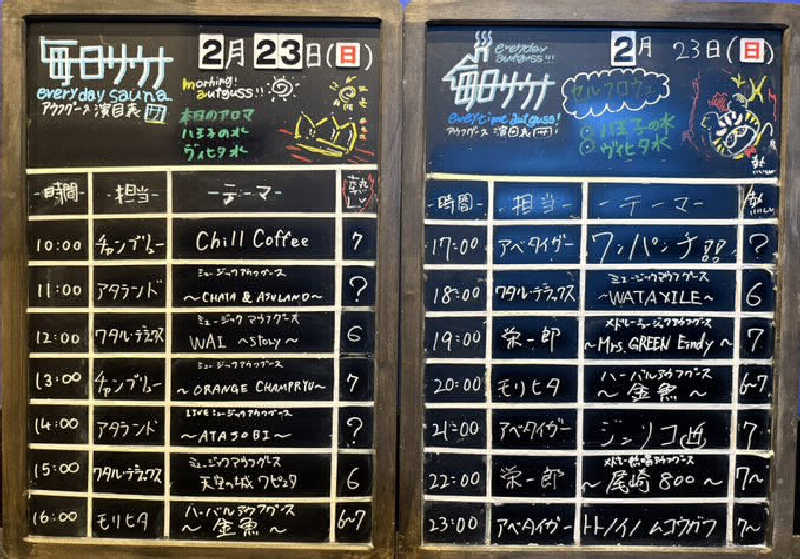 毎日サウナ
2月23日(日)
everyday sauna
アウフグース 演目表
morning!
autguss!!
本日のアロマ
八王子の水
ヴィヒタ水
-時間- -担当- -テーマ- 熱し
10:00 チャンプリュー Chill Coffee 7
11:00 アタランド ミュージックアウフグース
～CHATA & ASULAND～ ?
12:00 ワタル・デラックス ミュージックアウフグース
WAI ～story～ 6
13:00 チャンプリュー ミュージックアウフグース
～ORANGE CHAMPRYU～ 7
14:00 アタランド LIVEミュージックアウフグース
～ATASOBI～ ?
15:00 ワタル・デラックス ミュージックアウフグース
天空の城 ワピュタ 6
16:00 モリヒタ ハーバルアウフグース
～金魚～ 6~7
everyday
autguss!!!
毎日サウナ
2月 23日(日)
everytime autguss!
アウフグース 演目表
セルフロウリュ
八王子の水
ヴィヒタ水
-時間- -担当- -テーマ-
17:00 アベタイガー ワンパンチ ?
18:00 ワタル・デラックス ミュージックアウフグース
～WATAXILE～ 6
19:00 栄一郎 メドレーミュージックアウフグース
～Mrs. GREEN Eindy～ 7
20:00 モリヒタ ハーバルアウフグース
～金魚～ 6~7
21:00 アベタイガー 7
22:00 栄一郎
～尾崎800～ 7~
23:00 アベタイガー トトノイノ ムコウガワ 7~